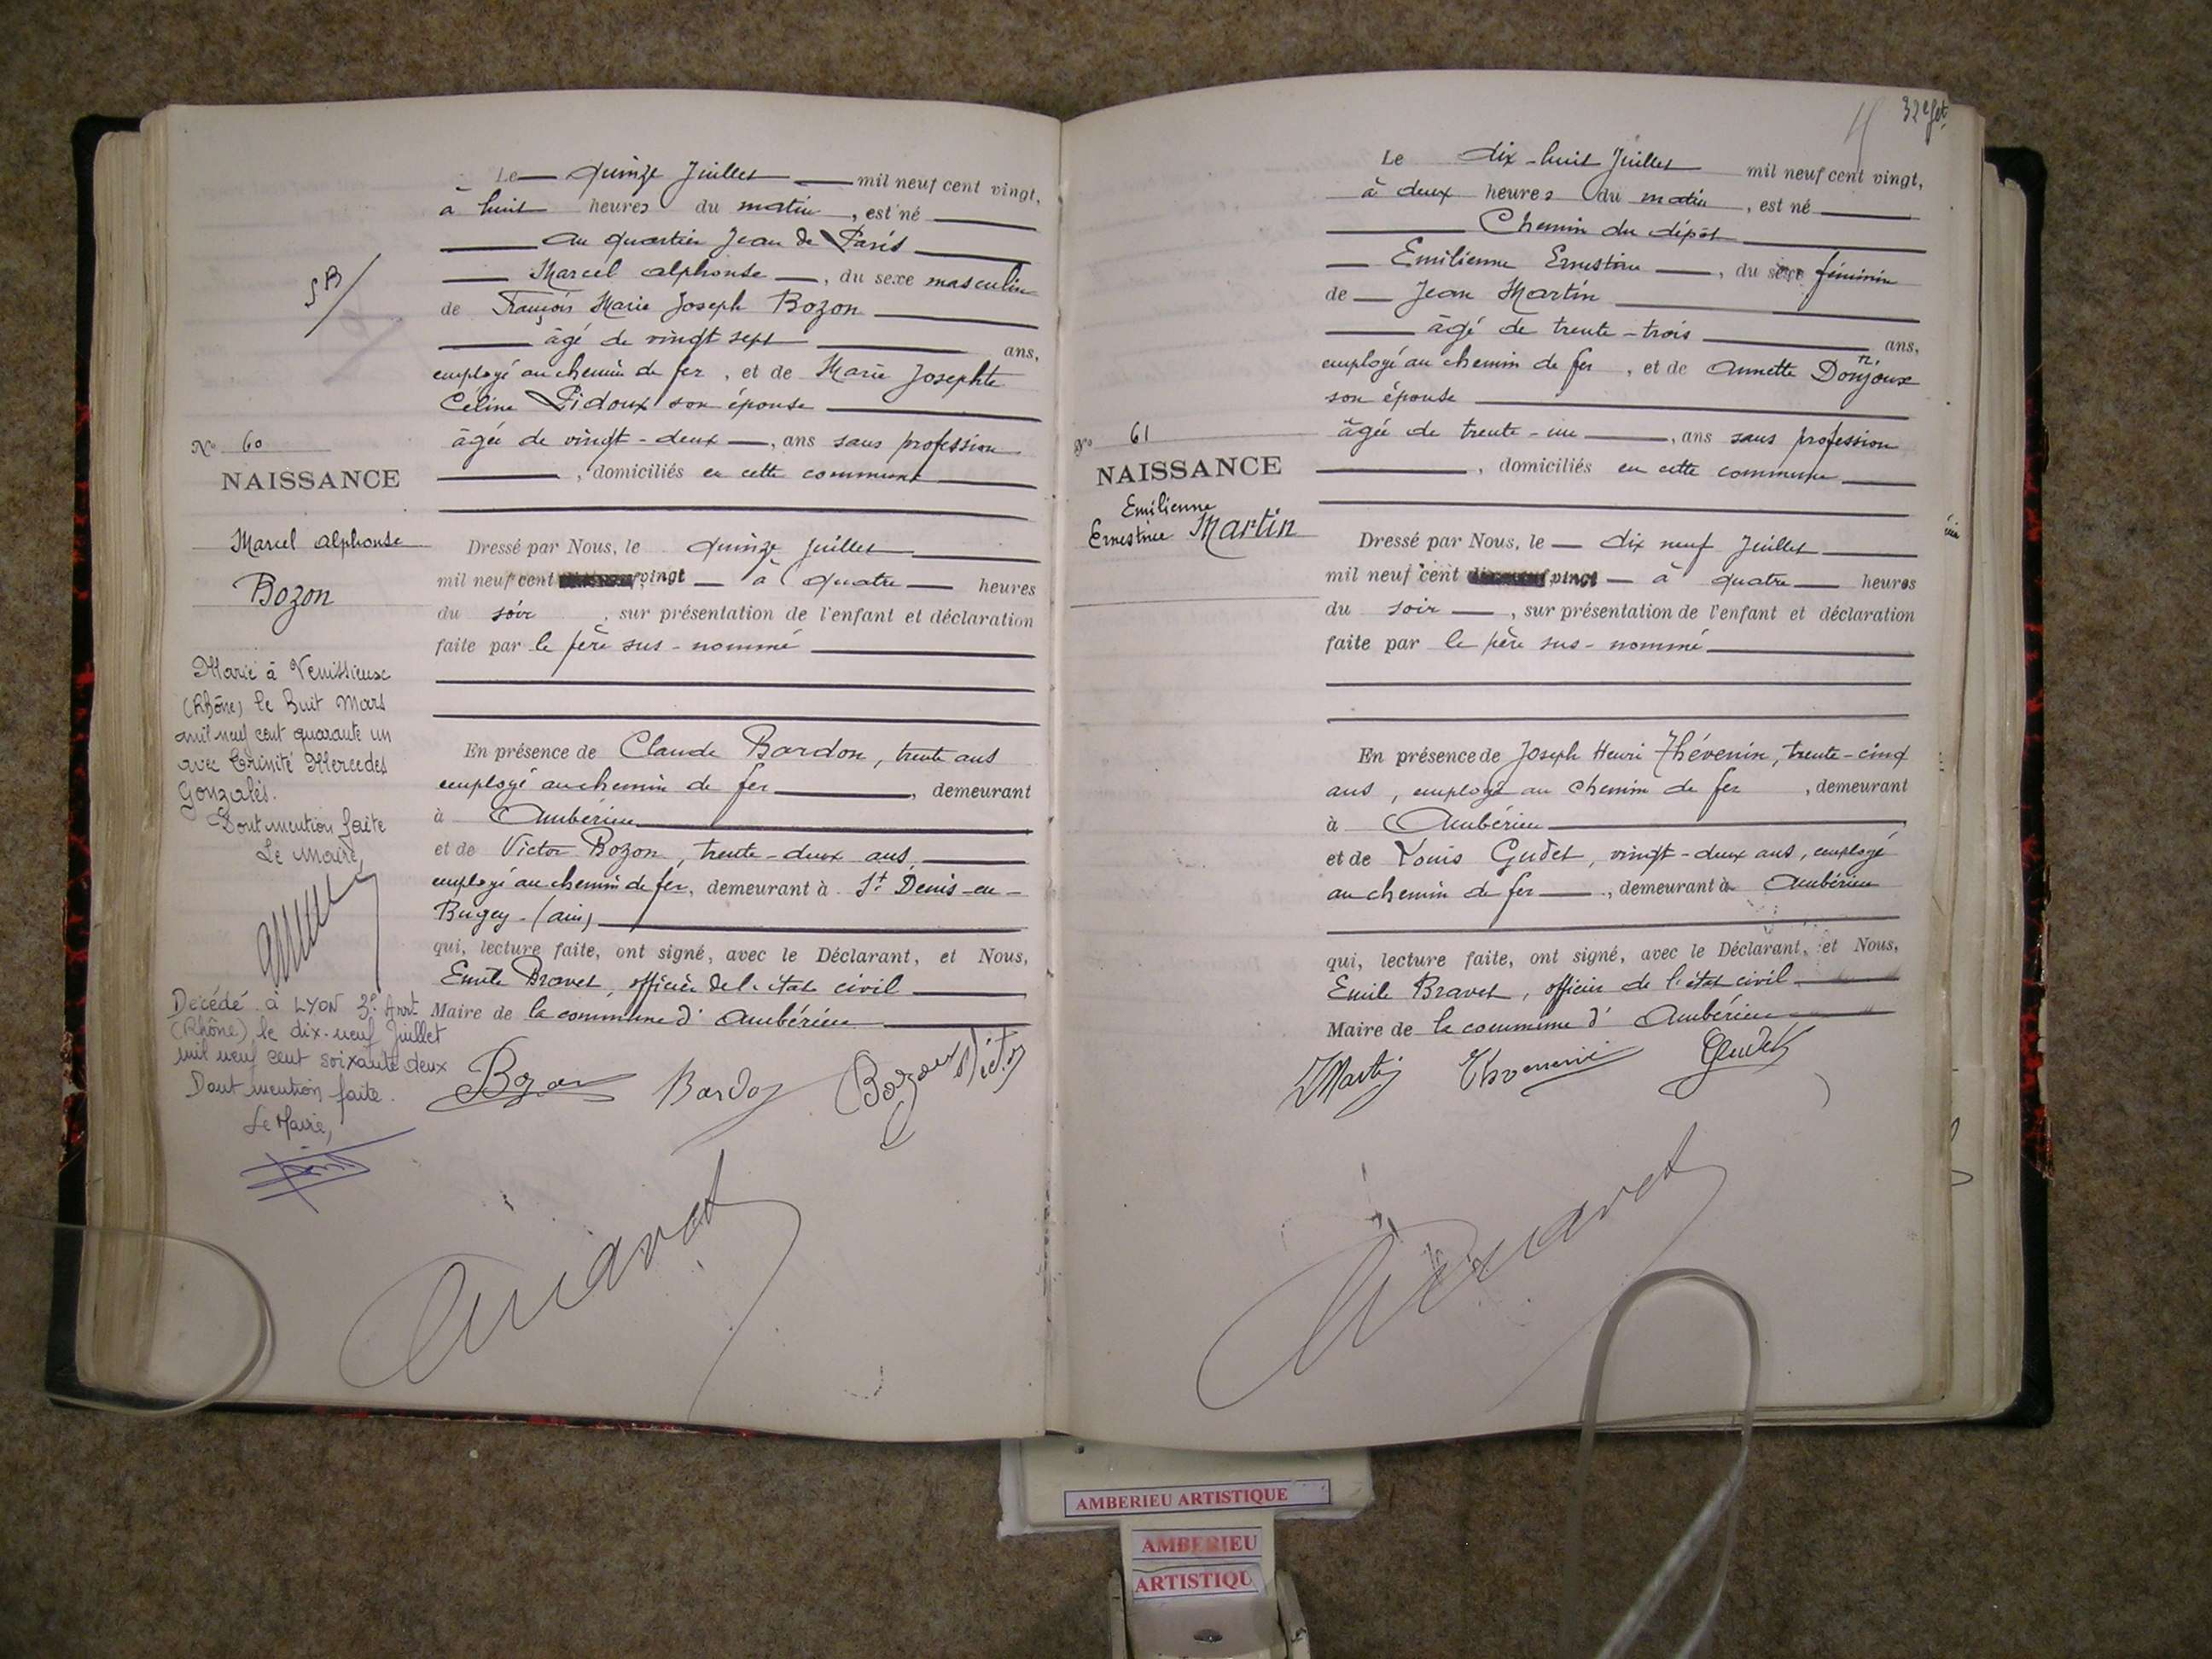 5B/
Le quinze Juillet mil neuf cent vingt,
à huit heures du matin, est né
au quartier Jean de Paris
Marcel Alphonse, du sexe masculin
de François Marie Joseph Bozon
âgé de vingt sept ans,
employé au chemin de fer, et de Marie Josephte
Céline Pidoux son épouse
âgée de vingt-deux, ans sans profession
, domiciliés en cette commune
No 60
NAISSANCE
Marcel Alphonse
Bozon
Dressé par Nous, le quinze Juillet
mil neuf cent vingt à quatre heures
du soir, sur présentation de l'enfant et déclaration
faite par le père sus-nommé
En présence de Claude Bardon, trente ans
employé au chemin de fer, demeurant
à Ambérieu
et de Victor Bozon, trente-deux ans,
employé au chemin de fer, demeurant à St. Denis-en-
Bugey-(Ain)
qui, lecture faite, ont signé, avec le Déclarant, et Nous,
Emile Bravet, officier de l'état civil
Maire de la commune d'Ambérieu
Marié à Venissieux
(Rhône) le huit Mars
mil neuf cent quarante un
avec Trinité Mercedes
Gonzalès.
Dont mention faite
Le Maire,
Décédé à LYON 3e Arrt
(Rhône) le dix-neuf Juillet
mil neuf cent soixante deux
Dont mention faite.
Le Maire,
Bozon Bardon Bozon Victor
32e fet.
Le dix-huit Juillet mil neuf cent vingt,
à deux heures du matin, est né
Chemin du dépôt
Emilienne Ernestine, du sexe féminin
de Jean Martin
âgé de trente-trois ans,
employé au chemin de fer, et de Annette Donjoux
son épouse
âgée de trente-un, ans sans profession
, domiciliés en cette commune
No 61
NAISSANCE
Emilienne
Ernestine Martin
Dressé par Nous, le dix neuf Juillet
mil neuf cent vingt à quatre heures
du soir, sur présentation de l'enfant et déclaration
faite par le père sus-nommé
En présence de Joseph Henri Thévenin, trente-cinq
ans, employé au chemin de fer, demeurant
à Ambérieu
et de Louis Gudet, vingt-deux ans, employé
au chemin de fer, demeurant à Ambérieu
qui, lecture faite, ont signé, avec le Déclarant, et Nous,
Emile Bravet, officier de l'état civil
Maire de la commune d'Ambérieu
Martin Thevenin Gudet
AMBERIEU ARTISTIQUE
AMBERIEU
ARTISTIQU